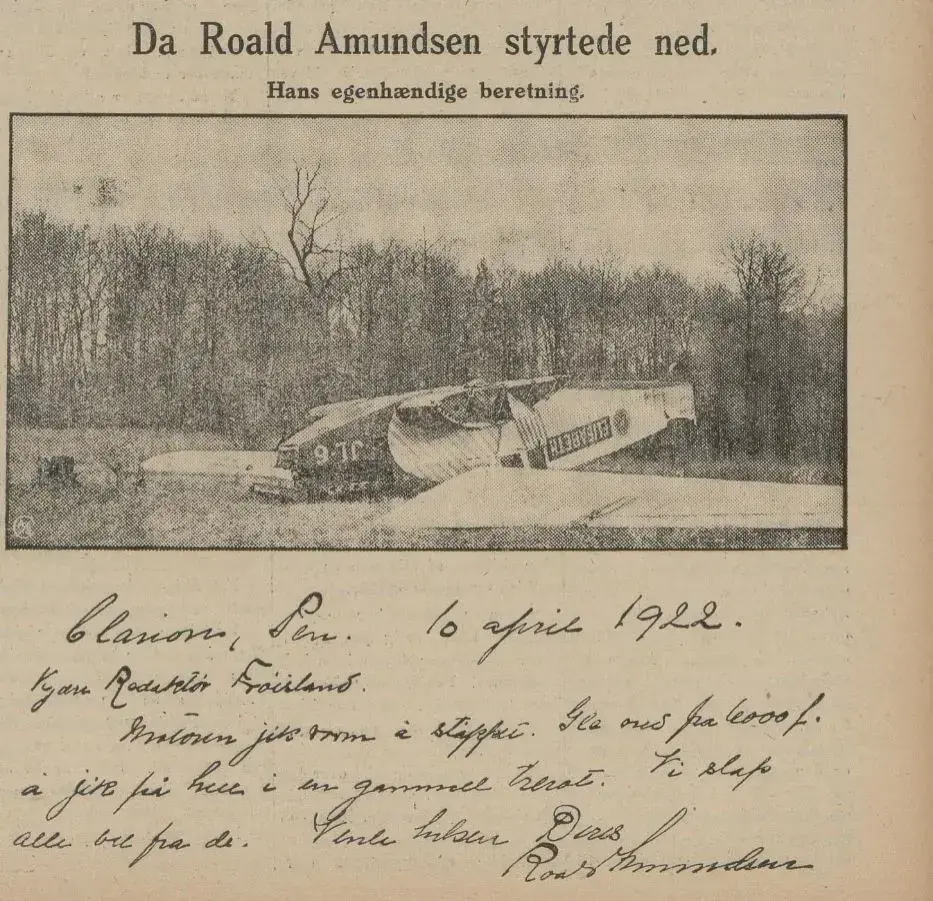 Da Roald Amundsen styrtede ned.
Hans egenhændige beretning.
JL-6
ELISABETH
Clarion, Pen. 10 april 1922.
Kjære Redaktör Fröisland.
Motoren jik varm å stoppet. Gle ned fra 6000 f.
å jik på hue i en gammel trerot. Vi slap
alle vel fra de. Venle hilsen Deres
Roald Amundsen